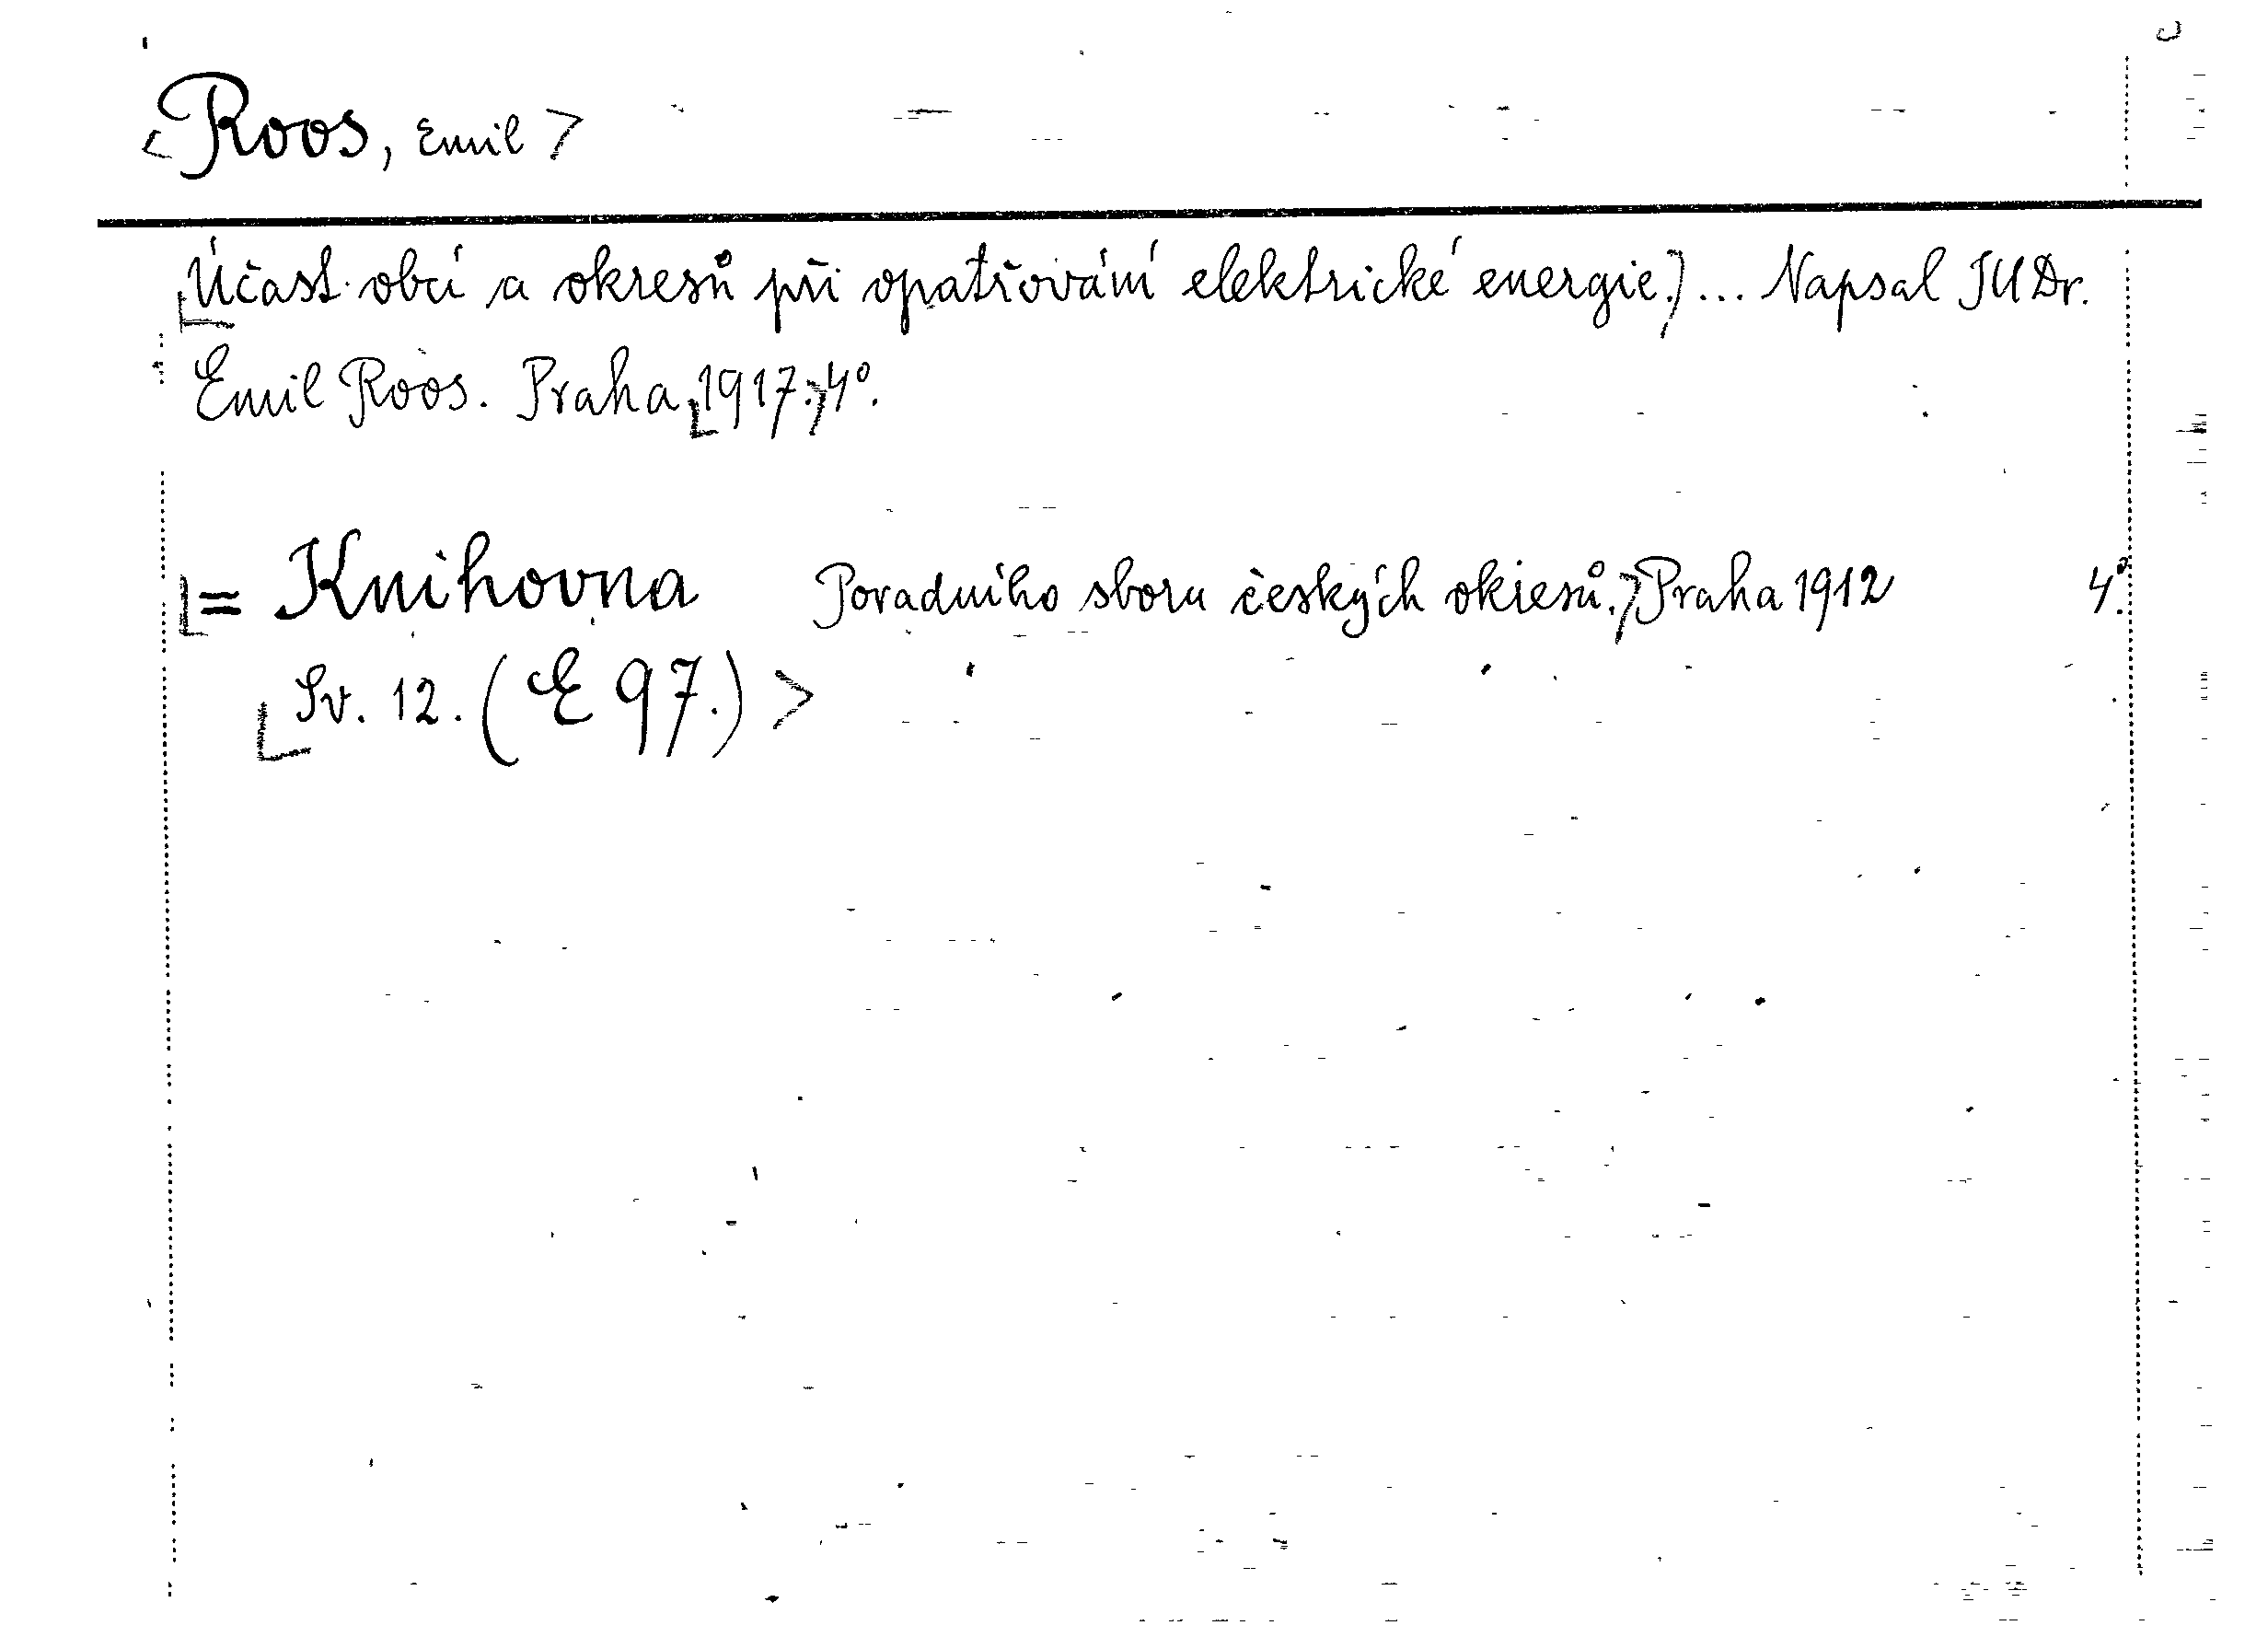 Roos, Emil
Účast obcí a okresů při opatřování elektrické energie.) ... Napsal JUDr.
Emil Roos. Praha 1917. 4°.
= Knihovna Poradního sboru českých okresů. Praha 1912 4°.
Sv. 12. (E 97.)